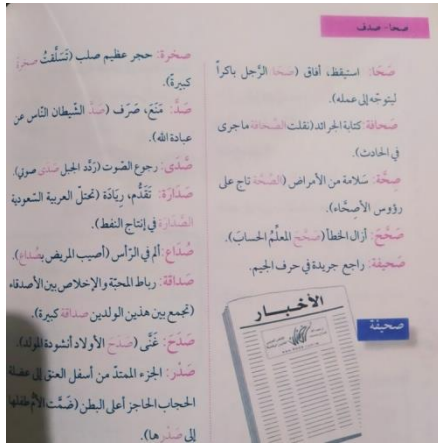 صحا - صدف
صَحَا: استيقظ، أفاق (صَحَا الرَّجل باكراً
ليتوجّه إلى عمله).
صَحَافة: كتابة الجرائد (نقلت الصَّحافة ما جرى
في الحادث).
صِحَّة: سَلامة من الأمراض (الصِّحَّة تاج على
رؤوس الأصِحَّاء).
صَحَّحَ: أزال الخطأ (صَحَّحَ المعلِّمُ الحسابَ).
صَحيفة: راجع جريدة في حرف الجيم.
صحيفة
الأخبار
صَخرة: حجر عظيم صلب (تَسَلَّقتُ صخرة
كبيرةً).
صَدَّ: مَنَعَ، صَرَف (صَدَّ الشّيطان النّاس عن
عبادة الله).
صَّدَى: رجوع الصّوت (رَدَّد الجبل صَدَى صوتي).
صَدَارَة: تَقَدُّم، رِيَادَة (تحتلّ العربية السّعودية
الصَّدَارَة في إنتاج النفط).
صُدَاع: ألم في الرّأس (أصيب المريض بِصُداع).
صَدَاقة: رباط المحبّة والإخلاص بين الأصدقاء
(تجمع بين هذين الولدين صداقة كبيرة).
صَدَحَ: غَنَّى (صَدَحَ الأولاد أنشودة المولد).
صَدْر: الجزء الممتدّ من أسفل العنق إلى عضلة
الحجاب الحاجز أعلى البطن (ضَمَّت الأمّ طفلها
إلى صَدْرِها).